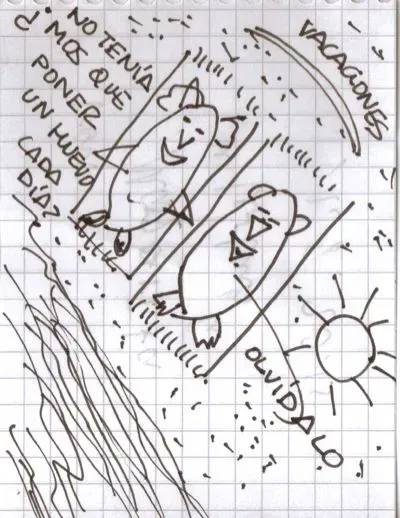 VACACIONES
¿ NO TENÍA
MOS QUE
PONER
UN HUEVO
CADA
DÍA?
OLVÍDALO